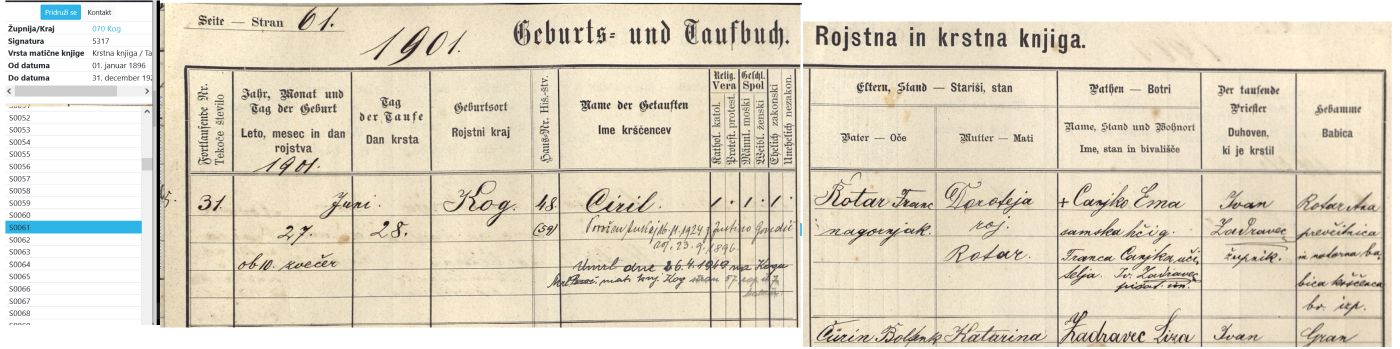 Pridruži se Kontakt
Župnija/Kraj 070 Kog
Signatura 5317
Vrsta matične knjige Krstna knjiga / Ta
Od datuma 01. januar 1896
Do datuma 31. december 192
S0052
S0053
S0054
S0055
S0056
S0057
S0058
S0059
S0060
S0061
S0062
S0063
S0064
S0065
S0066
S0067
S0068
Seite — Stran 61.
1901. Geburts- und Taufbuch. Rojstna in krstna knjiga.
Fortlaufende Nr.
Tekoče število
Jahr, Monat und
Tag der Geburt
Leto, mesec in dan
rojstva
1901.
Tag
der Taufe
Dan krsta
Geburtsort
Rojstni kraj
Haus-Nr. Hiš.-štv.
Name der Getauften
Ime krščencev
Relig.
Vera
Geschl.
Spol
Kathol. katol.
Protest. protest.
Männl. moški
Weibl. ženski
Ehelich zakonski
Unehelich nezakon.
Eltern, Stand — Stariši, stan
Vater — Oče
Mutter — Mati
Pathen — Botri
Name, Stand und Wohnort
Ime, stan in bivališče
Der taufende
Priester
Duhoven,
ki je krstil
Hebamme
Babica
31. Juni. Kog. 48. Ciril. 1. 1. 1.
27. 28. (39)
16.11.1924
23.9.1896.
ob 10. zvečer
Umrl dne 26.4.1949 na Kogu
mati. knj. Kog stran
Rotar Franc
nagornjak.
Doroteja
roj.
Rotar.
+ Canjko Ema
samska hči g.
Franca Canjka, uči
telja. Iv. Zadravec
Ivan
Zadravec
župnik.
Rotar Ana
prevžitnica
in notorna ba
bica krščenca
br. izp.
Čurin Bolfenk Katarina Zadravec Liza Ivan Gran